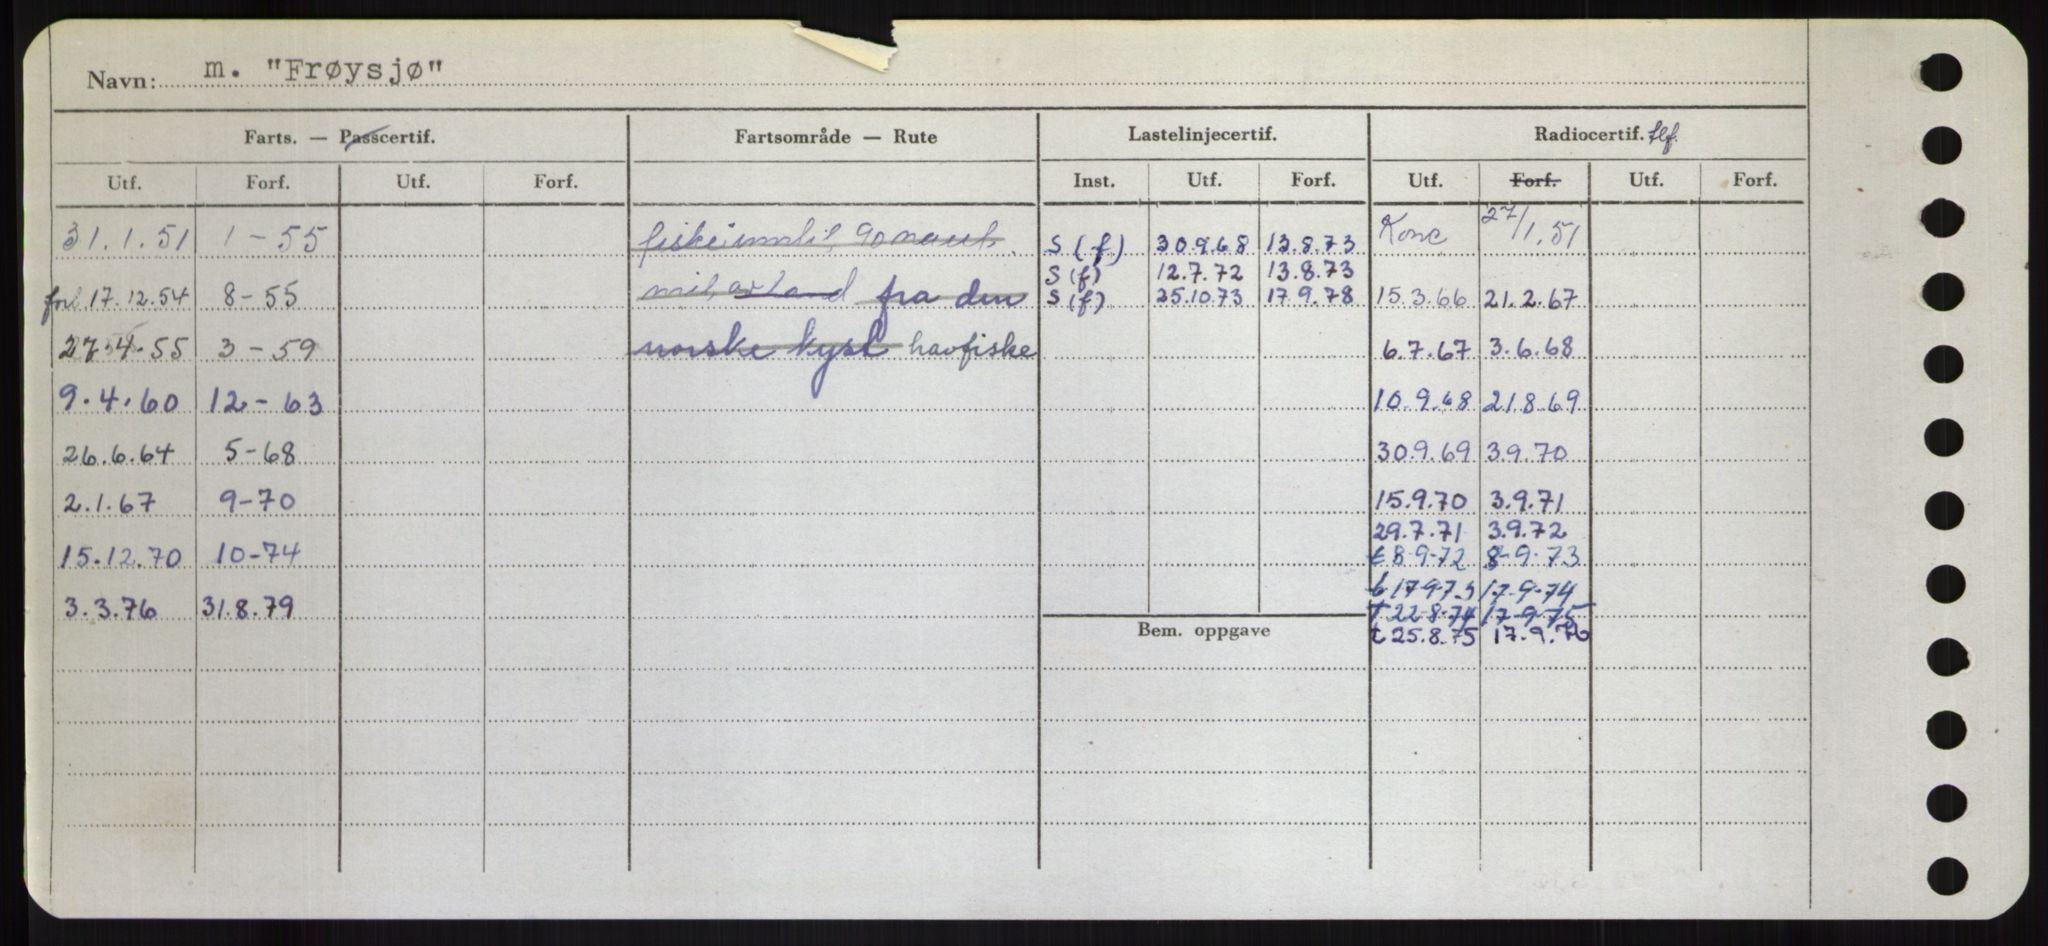 Navn: m. "Frøysjø"
Farts. — Passcertif. Fartsområde — Rute Lastelinjecertif. Radiocertif. tlf.
Utf. Forf. Utf. Forf. Inst. Utf. Forf. Utf. Forf. Utf. Forf.
31.1.51 1-55 fiske inntil 90 naut. S (f) 30.9.68 13.8.73 Konc 27/1.51
S (f) 12.7.72 13.8.73
forl 17.12.54 8-55 mil avstand fra den S (f) 25.10.73 17.9.78 15.3.66 21.2.67
27.4.55 3-59 norske kyst havfiske 6.7.67 3.6.68
9.4.60 12-63 10.9.68 21.8.69
26.6.64 5-68 30.9.69 3.9.70
2.1.67 9-70 15.9.70 3.9.71
29.7.71 3.9.72
15.12.70 10-74 t 8-9-72 8-9-73
t 17-9-73 17-9-74
3.3.76 31.8.79 t 22-8-74 17-9-75
Bem. oppgave t 25.8.75 17.9.76